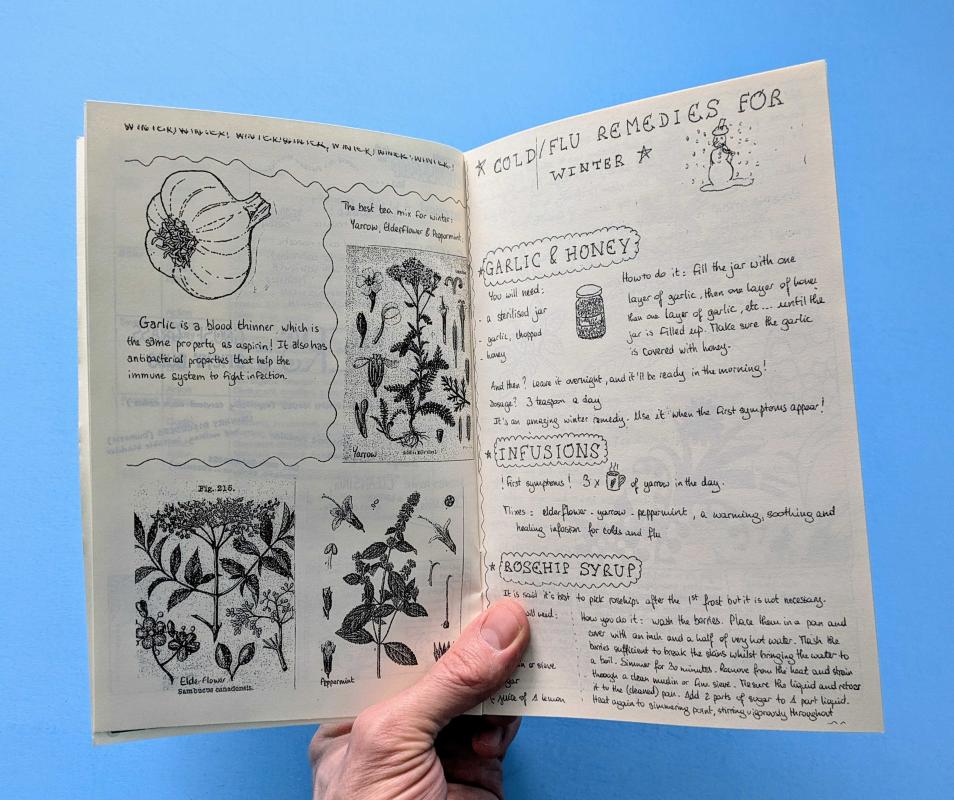 WINTER! WINTER! WINTER! WINTER, WINTER! WINTER! WINTER!
The best tea mix for winter:
Yarrow, Elderflower & Peppermint
Garlic is a blood thinner which is
the same property as aspirin! It also has
antibacterial properties that help the
immune system to fight infection.
Yarrow
Fig. 215.
Elderflower
Sambucus canadensis.
Peppermint
COLD/FLU REMEDIES FOR
WINTER
GARLIC & HONEY
You will need:
- a sterilised jar
- garlic, chopped
- honey
How to do it: fill the jar with one
layer of garlic, then one layer of honey
then one layer of garlic, etc... until the
jar is filled up. Make sure the garlic
is covered with honey.
And then? Leave it overnight, and it'll be ready in the morning!
Dosage? 3 teaspoon a day
It's an amazing winter remedy. Use it when the first symptoms appear!
INFUSIONS
! First symptoms! 3 x of yarrow in the day.
Mixes: elderflower - yarrow - peppermint, a warming, soothing and
healing infusion for colds and flu
ROSEHIP SYRUP
It is said it's best to pick rosehips after the 1st frost but it is not necessary.
will need:
or sieve
juice of 1 lemon
How you do it: wash the berries. Place them in a pan and
cover with an inch and a half of very hot water. Mash the
berries sufficient to break the skins whilst bringing the water to
a boil. Simmer for 30 minutes. Remove from the heat and strain
through a clean muslin or fine sieve. Mesure the liquid and return
it to the (cleaned) pan. Add 2 parts of sugar to 1 part liquid.
Heat again to simmering point, stirring vigorously throughout